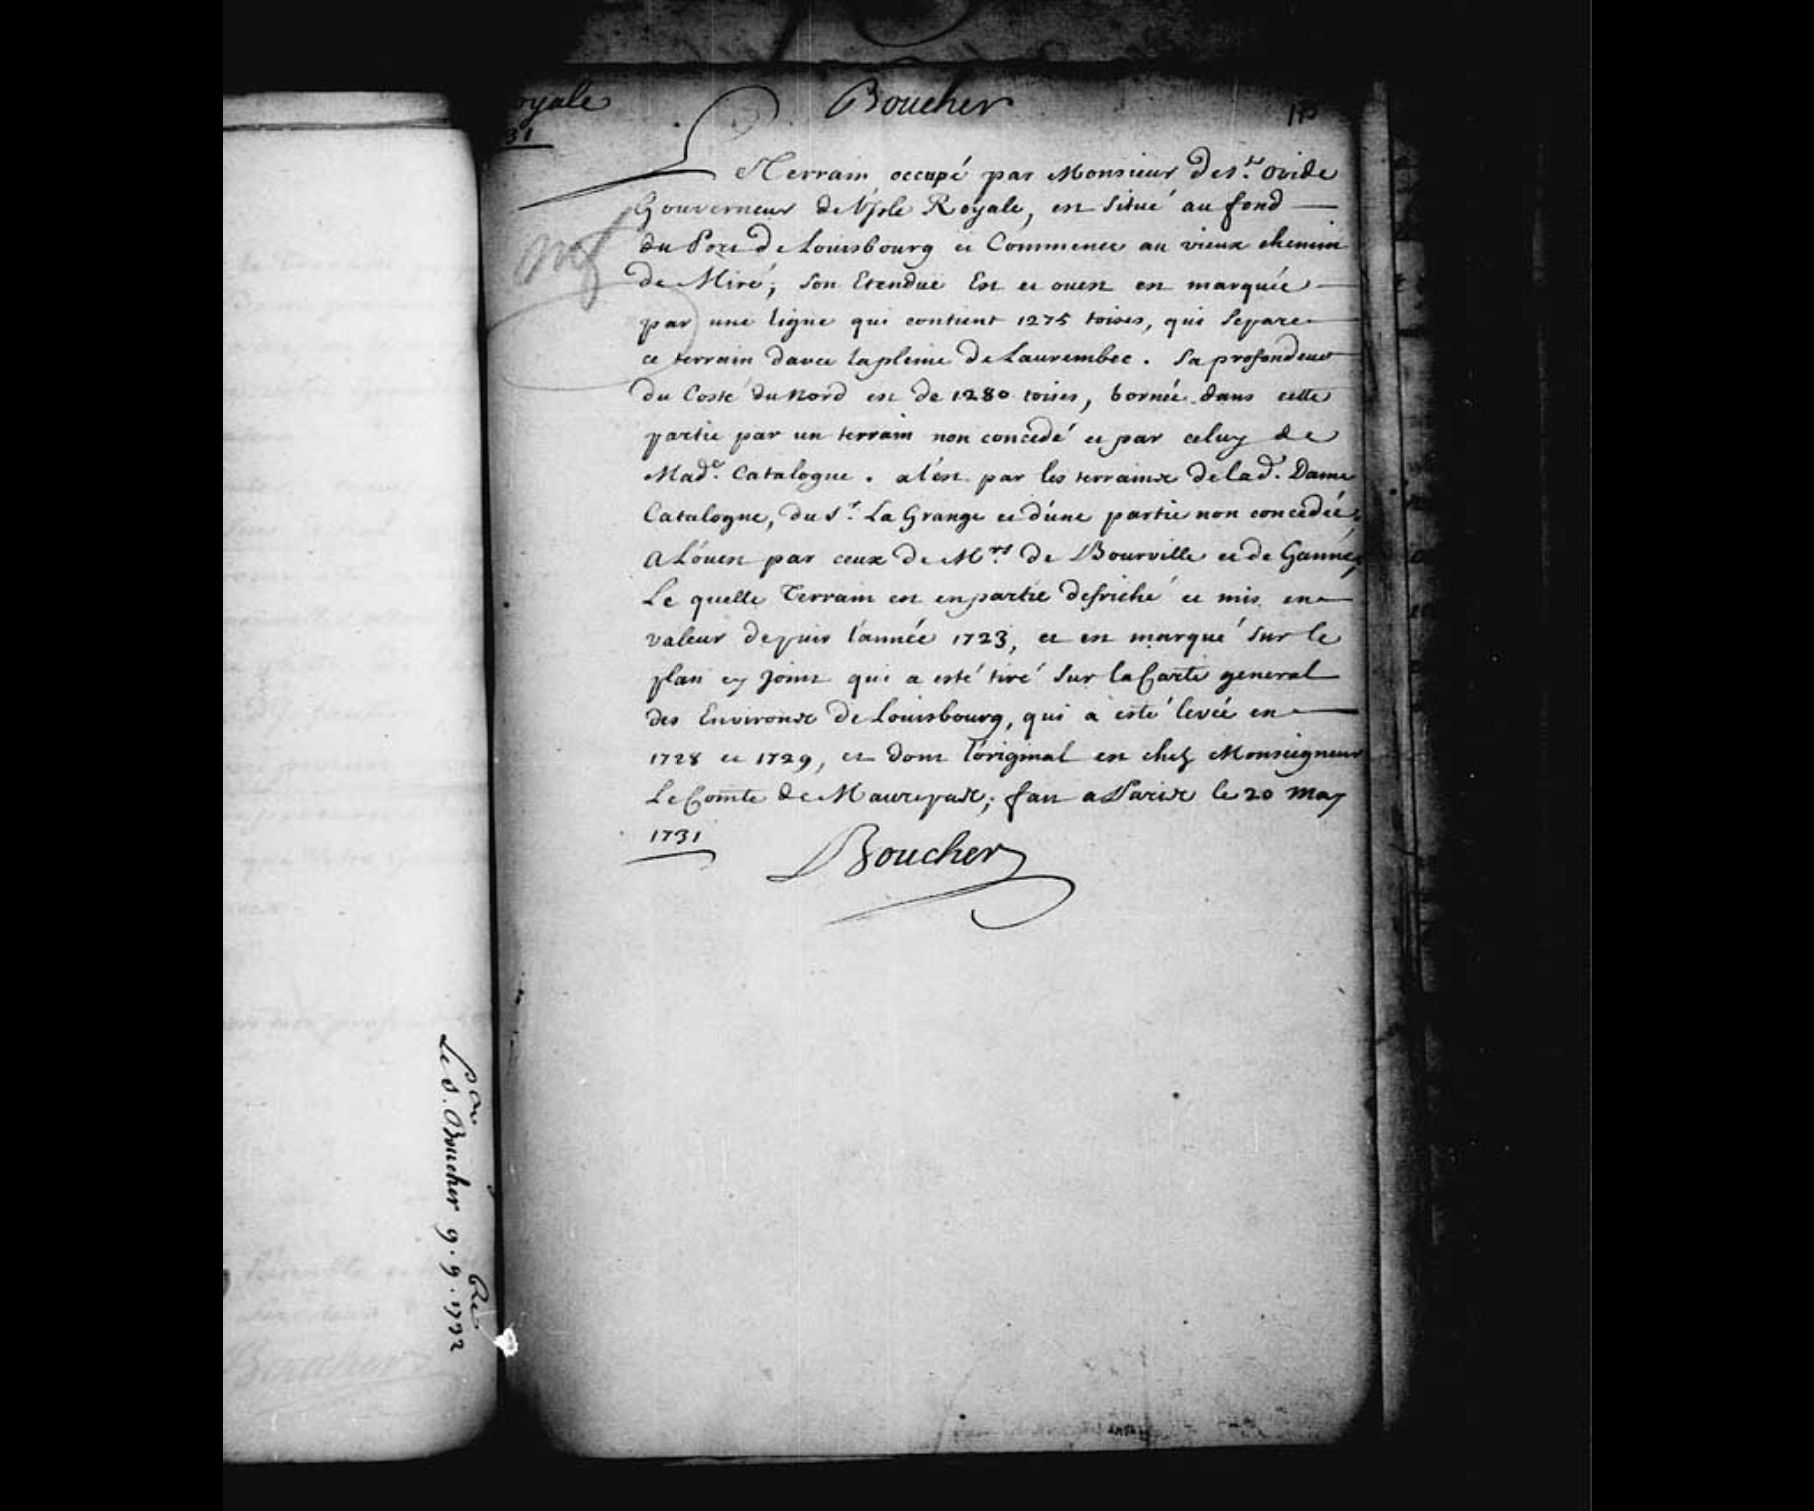 oyale
31
Boucher
Le Terrain occupé par Monsieur de st. ovide
Gouverneur de l'jsle Royale, est Situé au fond
du Port de Louisbourg et Commence au vieux chemin
de Miré; Son Etendue Est et ouest est marquée
par une ligne qui contient 1275 toises, qui Separe
ce terrain davec la pleine de Laurembec. Sa profondeur
du Costé du Nord est de 1280 toises, bornée dans cette
partie par un terrain non concedé et par celuy de
Made. Catalogne. a l'est par les terrains de lad. Dame
Catalogne, du sr. La Grange et d'une partie non concedée,
A L'ouest par ceux de Mrs. de Bourville et de Ganne,
Le quelle Terrain est en partie defriché et mis en
valeur depuis l'année 1723, et est marqué Sur le
plan cy joint qui a esté tiré Sur la Carte general
des Environs de Louisbourg, qui a esté levée en
1728 et 1729, et dont l'original est chez Monseigneur
Le Comte de Maurepas; fait a Paris le 20 May
1731
Boucher
Par
Le S. Boucher 9. 9. 1722